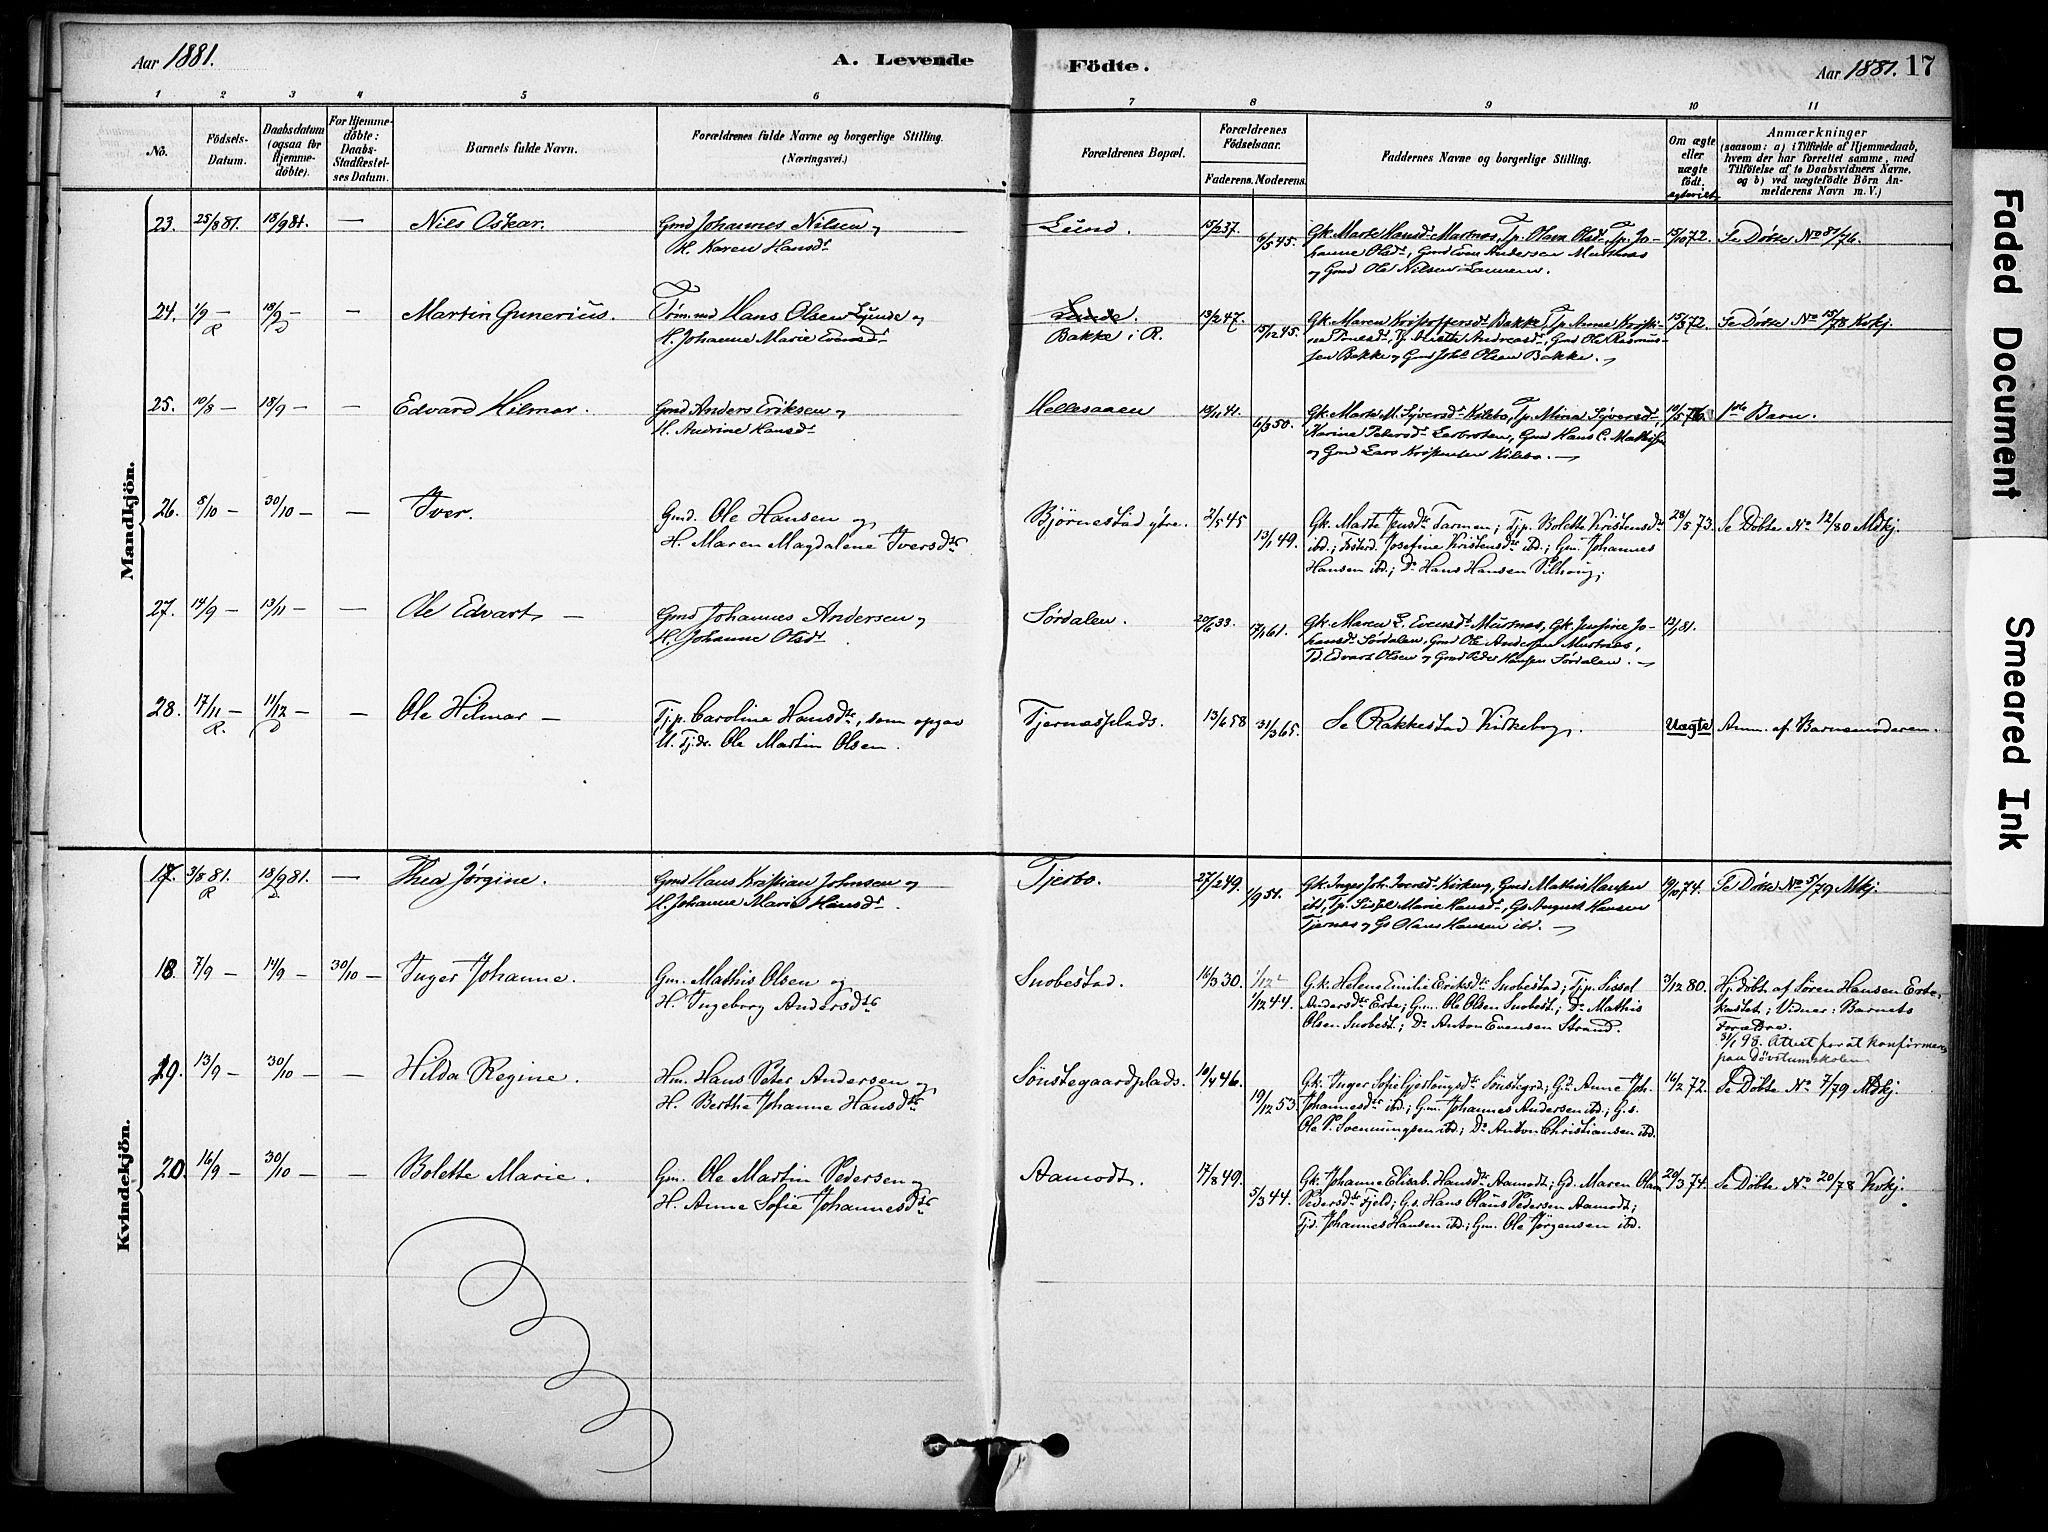 Aar 1881.
A. Levende
Födte.
Aar 1881. 17
1 2 3 4 5 6 7 8 9 10 11
No.
Födsels-
Datum.
Daabsdatum
(ogsaa för
Hjemme-
döbte).
For Hjemme-
döbte:
Daabs-
Stadfæstel-
ses Datum.
Barnets fulde Navn.
Forældrenes fulde Navne og borgerlige Stilling.
(Næringsvei.)
Forældrenes Bopæl.
Forældrenes
Födselsaar.
Faderens. Moderens.
Faddernes Navne og borgerlige Stilling.
Om ægte
eller
uægte
födt.
Anmærkninger
(saasom: a) i Tilfælde af Hjemmedaab,
hvem der har forrettet samme, med
Tilföielse af to Daabsvidners Navne.
og b) ved uægtefödte Börn An-
melderens Navn m. V.)
Mandkjön.
23. 25/8 81. 18/9 81. — Nils Oskar. Gmd Johannes Nilsen og
H. Karen Hansdr
Lund. 15/2 37. 6/5 45.
hanne Olsdr, Gmd Even Andersen Murtnes
og Gmd Ole Nilsen
15/10 72. Se Døbte No 8/76.
24. 1/9 — 18/9 — — Martin Gunerius. Tømmd Hans Olsen Lunde og
R D H. Johanne Marie Evensdr
Lunde.
Bakke i R. 13/2 47. 15/12 45. Gk. Maren Kristoffersdr Bakke, Tp. Anne Kristi-
sen Bakke og Gmd Johs Olsen Bakke.
15/3 72. Se Døbte No 15/78 Kvkj.
25. 10/8 — 18/9 — — Edvard Hilmar. Gmd Anders Eriksen og
H. Andrine Hansdr
Hellesaaen 13/1 41. 6/3 50. Gk. Marte M. Syversdr Kilebo, Tp. Mina Syversdr,
Karine Petersdr Gmd Hans C. Mathisen
og Gmd Lars Kristensen Kilebo. —
1ste Barn.
26. 8/10 — 30/10 — — Iver. Gmd. Ole Hansen og
H. Maren Magdalene Iversdtr
Bjørnestad ytre. 2/5 45 13/1 49. Gk. Marte Jensdr Tarmen; Tjp. Bolette Kristensdtr
ibd.; Josefine Kristensdtr ibd; Gm. Johannes
Hansen ibd; Do Hans Hansen
28/5 73. Se Døbte No 12/80 Mdkj.
27. 14/9 — 13/11 — — Ole Edvart — Gmd Johannes Andersen og
H. Johanne Olsdr
Sørdalen. 20/6 33. 17/1 61. Gk. Maren E. Evensdr Murtnes, Gk. Josefine Jo-
hansdr Sørdalen, Gmd Ole Andersen Murtnes,
Td. Edvart Olsen og Gmd Peder Hansen Sørdalen. —
12/1 81.
28. 17/11 — 11/12 — — Ole Hilmar — Tjp. Caroline Hansdtr, som opgav
R. D U. Tjdr. Ole Martin Olsen.
Tjernesplads. 13/6 58 31/3 65. Se Rakkestad Kirkebog. Uægte Anm. af Barnemoderen.
Kvindekjön.
17. 3/8 81. 18/9 81. — Thea Jørgine. Gmd Hans Kristian Johnsen og
R D. H. Johanne Marie Hansdr
Tjerbo. 27/2 49. 1/9 51. Gk. Inger Joh. Iversdr Kirkeng, Gmd Mathis Hansen
ibd, Tp. Sissel Marie Hansdr, Gs August Hansen
Tjernes og Gs Olaus Hansen ibd. —
19/10 74. Se Døbte No 5/79 Mkj.
18. 7/9 — 14/9 — 30/10 — Inger Johanne. Gm. Mathis Olsen og
H. Ingeborg Andersdtr
Snobestad. 16/3 30. 1/12 44. G.k. Helene Emilie Eriksdtr Snobestad; Tjp. Sissel
Andersdtr Erte; Gm. Ole Olsen Snobest.; Do Mathis
Olsen Snobest.; Do Anton Evensen Strand.
3/12 80. Hj. døbt af Søren Hansen Erte-
kastet; Vidner: Barnets
Forældre.
31/1 95. Attest for at konfirmeres
paa Døvstumskolen
29. 13/9 — 30/10 — — Hilda Regine. Hm. Hans Peter Andersen og
H. Berthe Johanne Hansdtr
Sønstegaardplads. 10/4 46. 19/12 53. Gk. Inger Sofie Sønstegrd; Gd. Anne Joh.
Johannesdtr ibd; Gm. Johannes Andersen ibd; G.s.
Ole P. Svenningsen ibd; Do Anton Christiansen ibd.
16/2 72. Se Døbte No 7/79 Mdkj.
20. 16/9 — 30/10 — — Bolette Marie. Gm. Ole Martin Pedersen og
H. Anne Sofie Johannesdtr
Aamodt. 17/8 49. 5/3 44. Gk. Johanne Elisab. Hansdtr Aamodt; Gd. Maren Olava
Pedersdtr Fjeld; G.s. Hans Olaus Pedersen Aamodt;
Tjd. Johannes Hansen ibd; Gm. Ole Jørgensen ibd.
20/3 74. Se Døbte No 20/78 Kvkj.
Faded Document
Smeared Ink